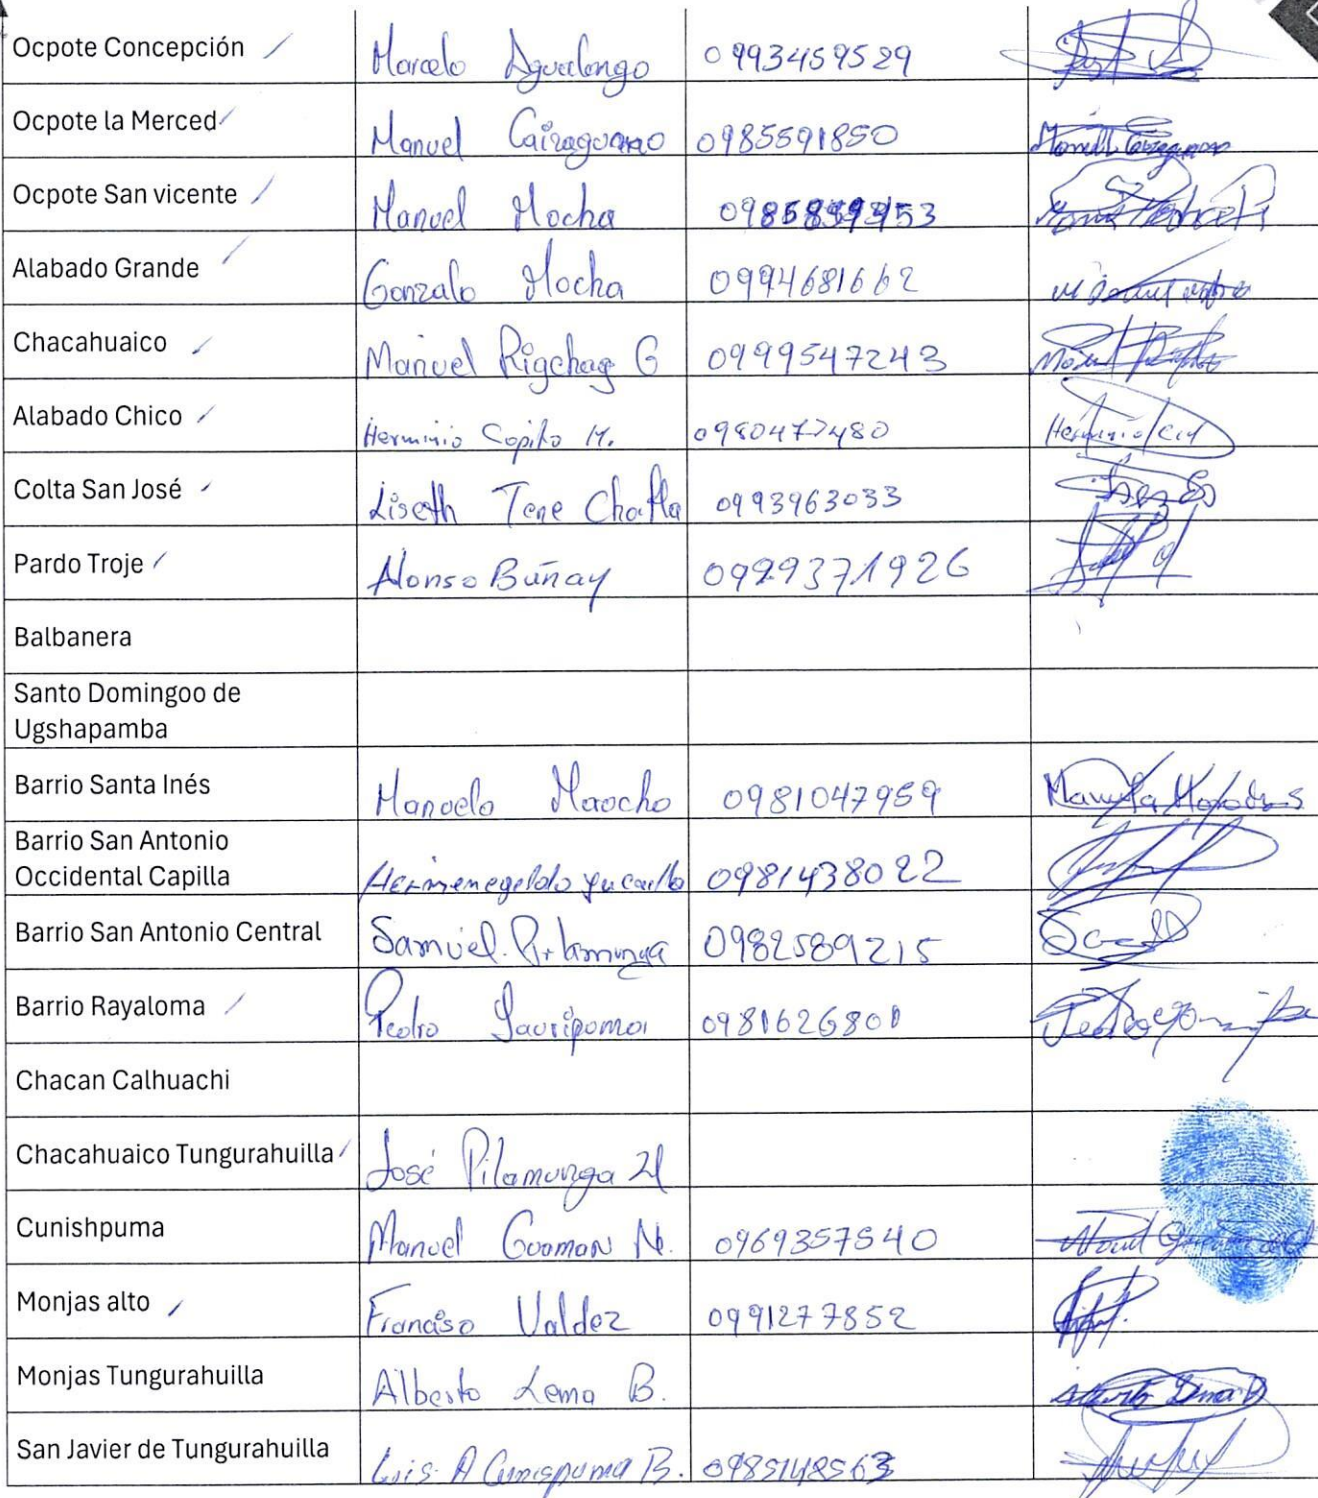 Ocpote Concepción Marcelo Agualongo 0993459529
Ocpote la Merced Manuel Cairaguano 0985591850
Ocpote San vicente Manuel Mocha
Alabado Grande Gonzalo Mocha 0994681662
Chacahuaico Manuel Rigchag G 0999547243
Alabado Chico Herminio Copito M. 0980477480
Colta San José Liseth Tene Chafla 0993963033
Pardo Troje Alonso Buñay 0999371926
Balbanera
Santo Domingoo de
Ugshapamba
Barrio Santa Inés Manoela 0981047959
Barrio San Antonio
Occidental Capilla Hermenegeldo Yucailla 0981438022
Barrio San Antonio Central Samuel. 0982589215
Barrio Rayaloma Pedro Yauripoma 0981626801
Chacan Calhuachi
Chacahuaico Tungurahuilla José Pilamunga
Cunishpuma Manuel Guaman N. 0969357540
Monjas alto Franciso Valdez 0991277852
Monjas Tungurahuilla Alberto Lema B. Alberto Lema B
San Javier de Tungurahuilla Luis A Cunispuma B. 0985148563